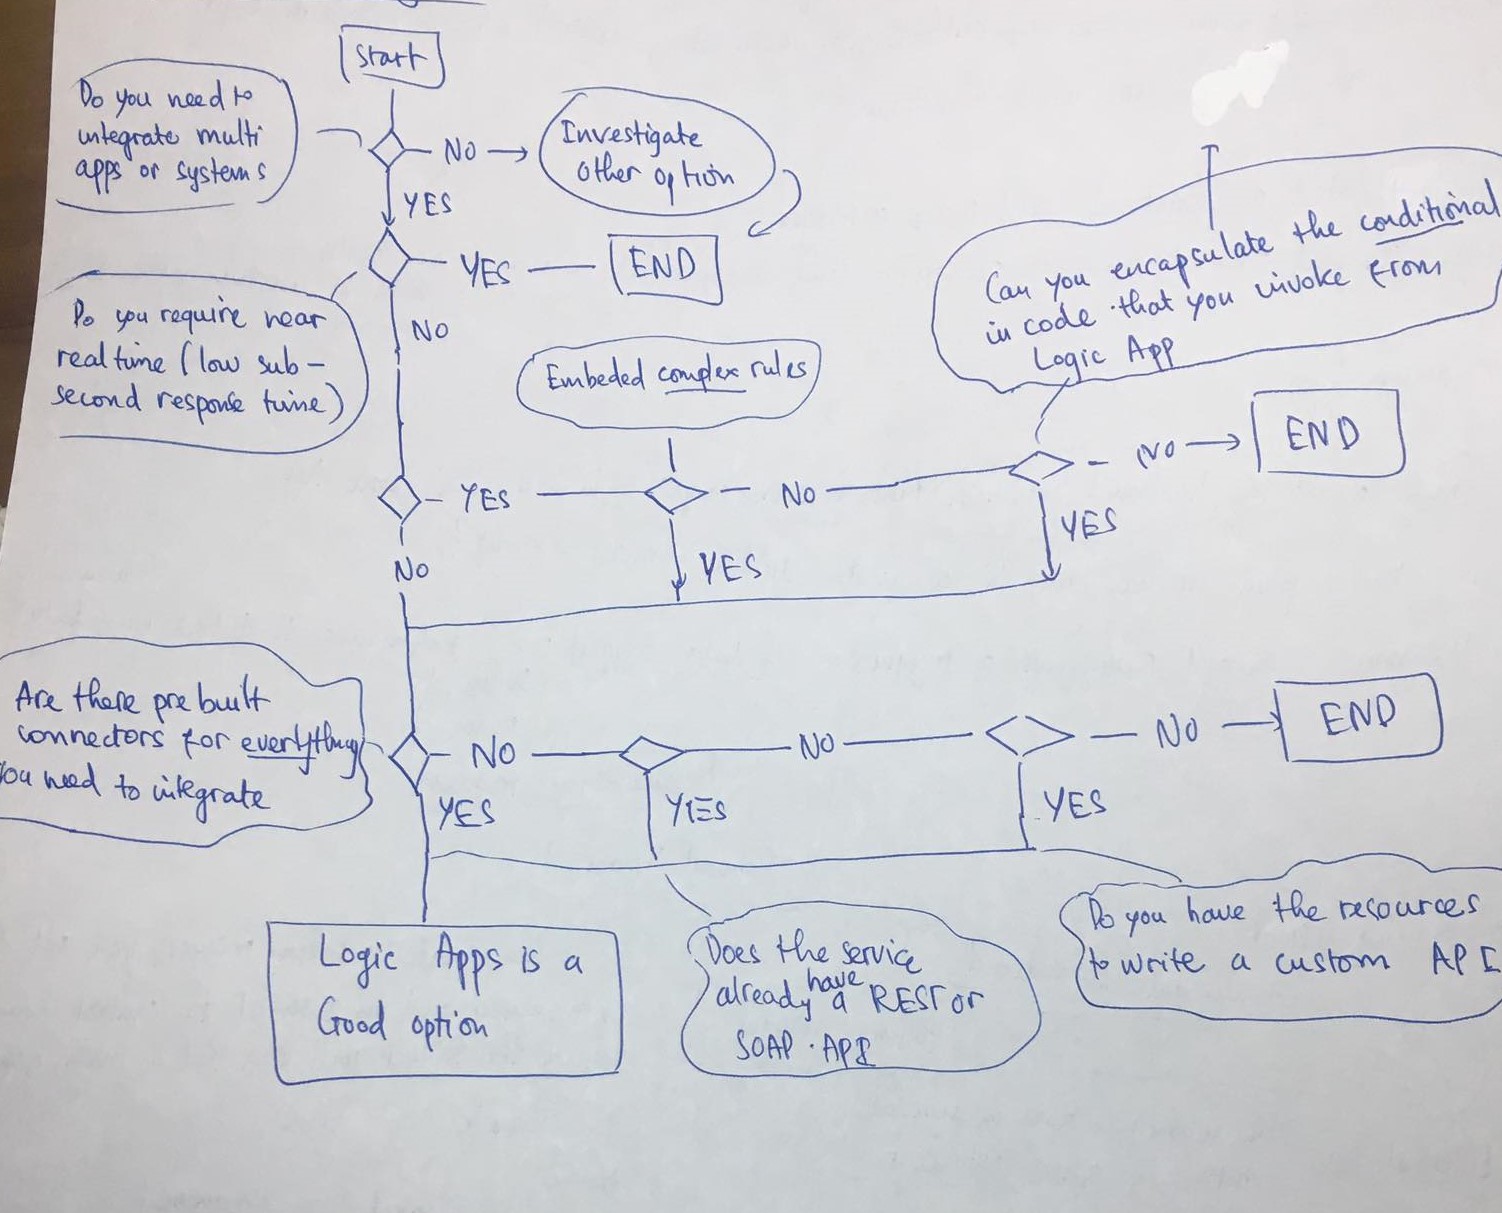 Start
Do you need to
integrate multi
apps or systems
NO
Investigate
other option
YES
YES
END
Do you require near
real time (low sub-
second response time)
NO
Embeded complex rules
Can you encapsulate the conditional
in code that you invoke from
Logic App
YES
NO
NO
END
YES
YES
NO
Are there prebuilt
connectors for everything
you need to integrate
NO
NO
NO
END
YES
YES
YES
Logic Apps is a
Good option
Does the service
already have a REST or
SOAP API
Do you have the resources
to write a custom API